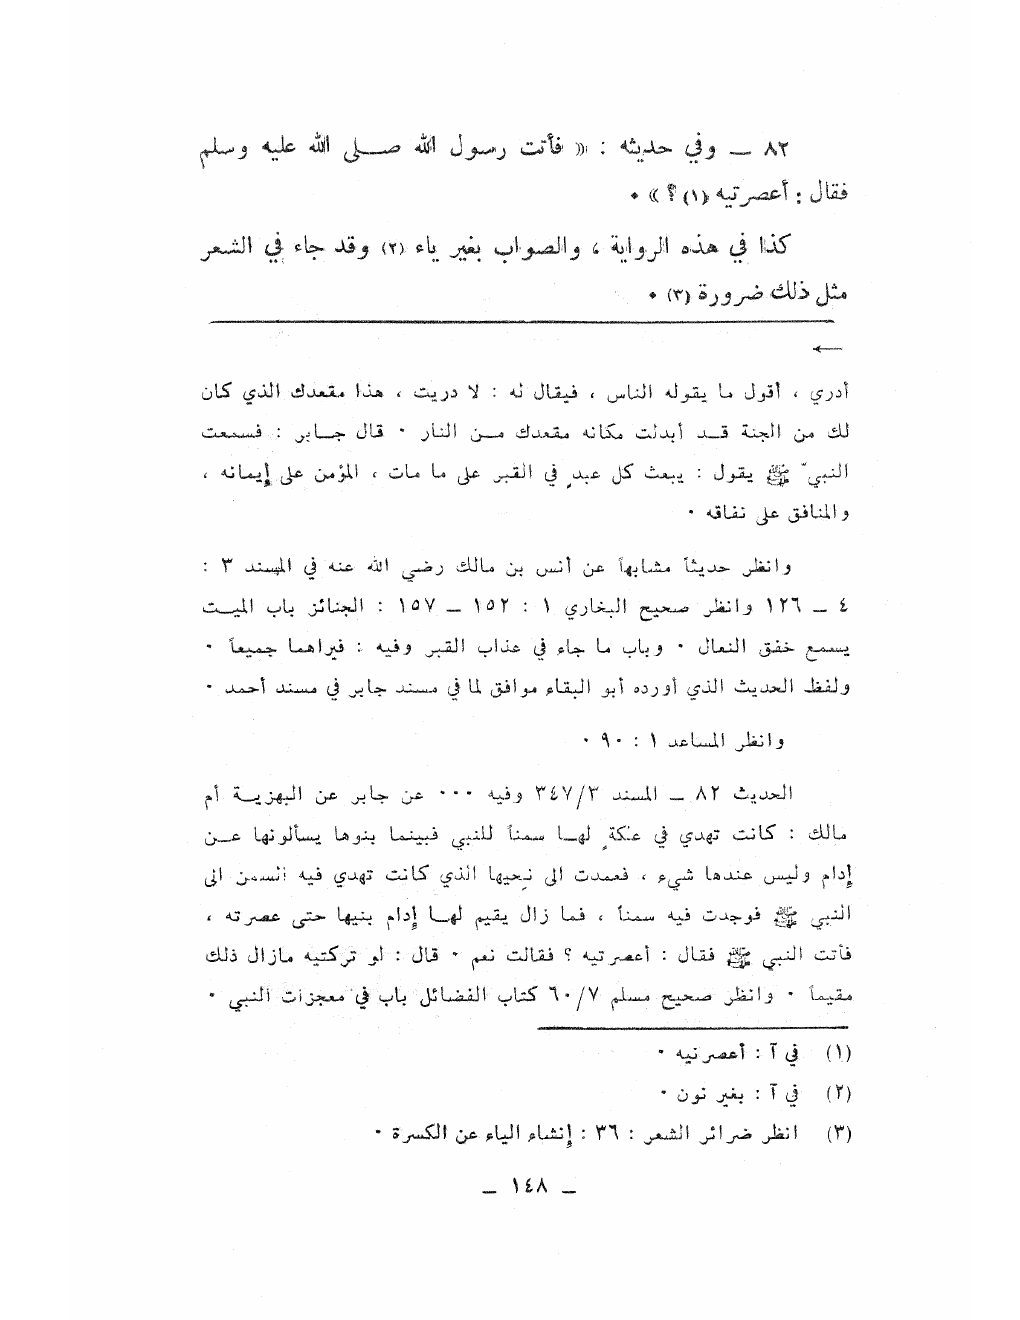 ٨٢ ـ وفي حديثه : « فأتت رسول الله صلى الله عليه وسلم
فقال : أعصرتيه (١) ؟ » ٠
كذا في هذه الرواية ، والصواب بغير ياء (٢) وقد جاء في الشعر
مثل ذلك ضرورة (٣) ٠
←
أدري ، أقول ما يقوله الناس ، فيقال له : لا دريت ، هذا مقعدك الذي كان
لك من الجنة قد أبدلت مكانه مقعدك من النار ٠ قال جابر : فسمعت
النبيّ ﷺ يقول : يبعث كل عبدٍ في القبر على ما مات ، المؤمن على إيمانه ،
والمنافق على نفاقه ٠
وانظر حديثاً مشابهاً عن أنس بن مالك رضي الله عنه في المسند ٣ :
٤ ـ ١٢٦ وانظر صحيح البخاري ١ : ١٥٢ ـ ١٥٧ : الجنائز باب الميت
يسمع خفق النعال ٠ وباب ما جاء في عذاب القبر وفيه : فيراهما جميعاً ٠
ولفظ الحديث الذي أورده أبو البقاء موافق لما في مسند جابر في مسند أحمد ٠
وانظر المساعد ١ : ٩٠ ٠
الحديث ٨٢ ـ المسند ٣٤٧/٣ وفيه ٠٠٠ عن جابر عن البهزية أم
مالك : كانت تهدي في عكةٍ لها سمناً للنبي فبينما بنوها يسألونها عن
إدام وليس عندها شيء ، فعمدت الى نحيها الذي كانت تهدي فيه السمن الى
النبي ﷺ فوجدت فيه سمناً ، فما زال يقيم لها إدام بنيها حتى عصرته ،
فأتت النبي ﷺ فقال : أعصرتيه ؟ فقالت نعم ٠ قال : لو تركتيه مازال ذلك
مقيماً ٠ وانظر صحيح مسلم ٦٠/٧ كتاب الفضائل باب في معجزات النبي ٠
(١) في آ : أعصرنيه ٠
(٢) في آ : بغير نون ٠
(٣) انظر ضرائر الشعر : ٣٦ : إنشاء الياء عن الكسرة ٠
ـ ١٤٨ ـ